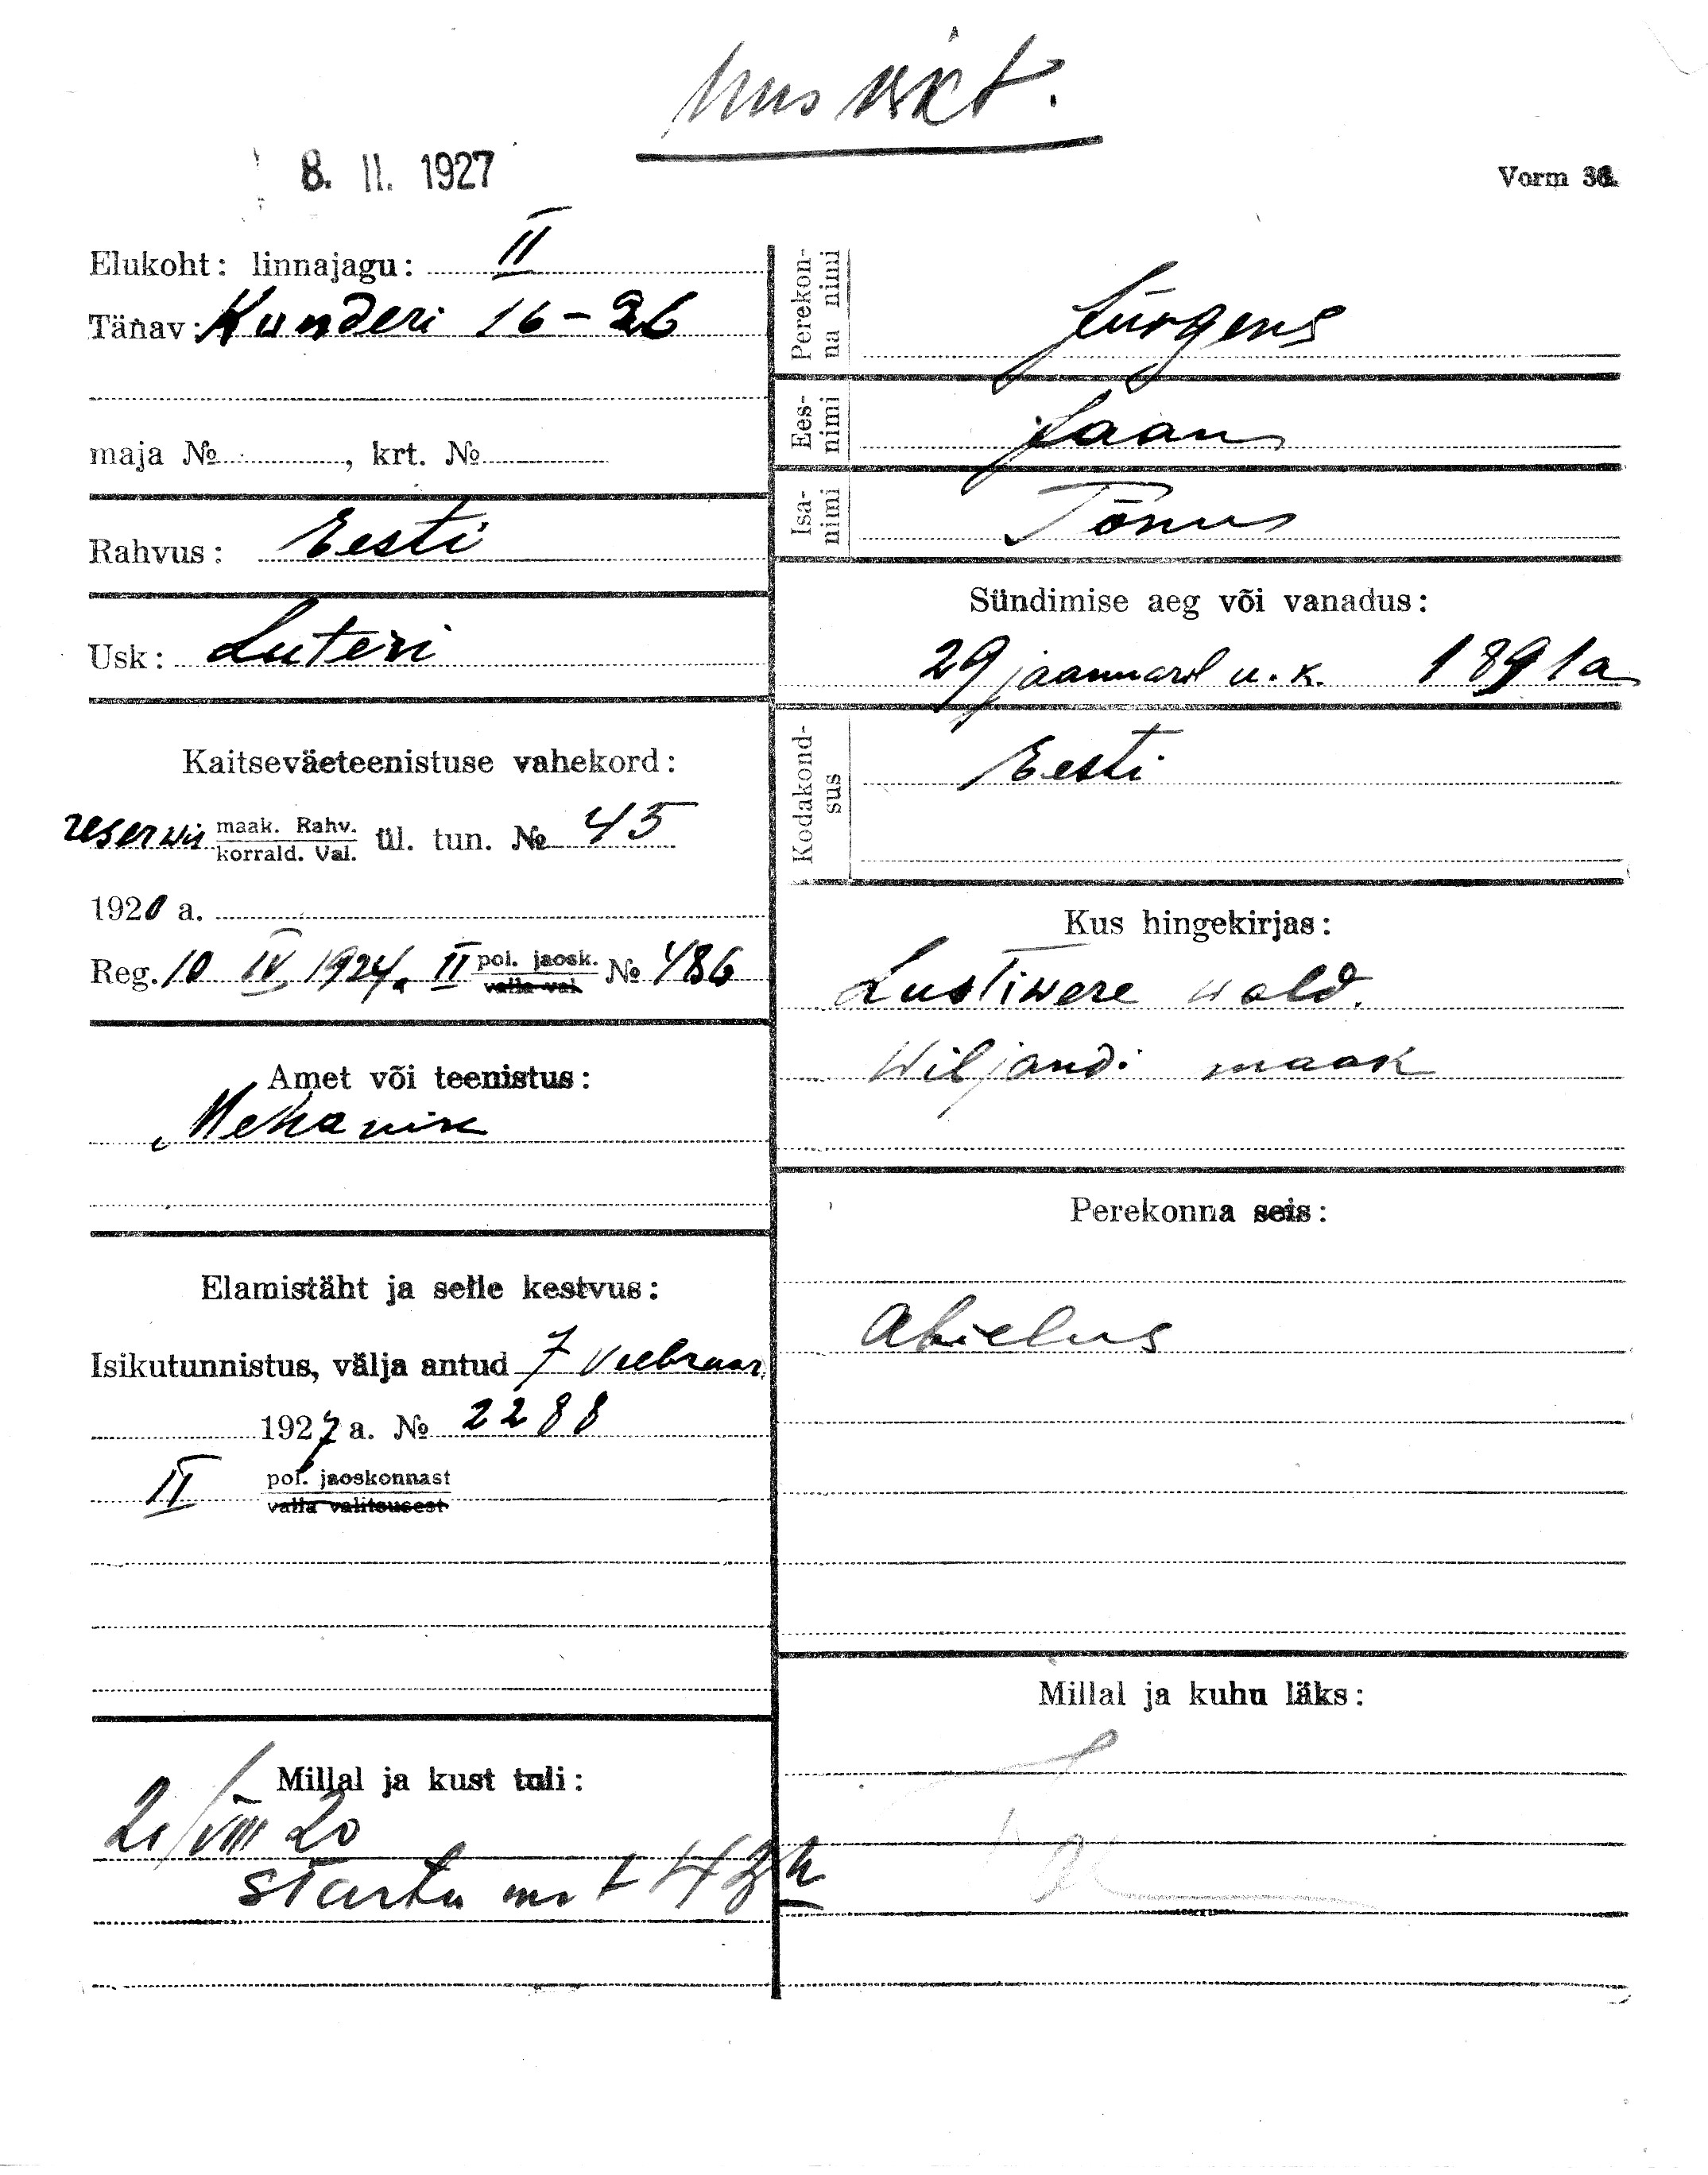 8. II. 1927
Vorm 36.
Elukoht: linnajagu: II
Tänav: Kunderi 16-26
maja № , krt. №
Rahvus: Eesti
Usk: Luteri
Kaitseväeteenistuse vahekord:
reserwis maak. Rahv. korrald. Val. ül. tun. № 45
1920 a.
Reg. 10 IV 1924. II pol. jaosk. valla val. № 486
Amet või teenistus:
Mehanik
Elamistäht ja selle kestvus:
Isikutunnistus, välja antud 7 Veebruar.
1927 a. № 2288
II pol. jaoskonnast
valla valitsusest
Millal ja kust tuli:
VIII 20
Perekonna nimi Jürgens
Eesnimi Jaan
Isanimi Tõnus
Sündimise aeg või vanadus:
29 jaanuaril u. k. 1891 a
Kodakondsus Eesti
Kus hingekirjas:
Lustiwere wald.
Wiljandi maak
Perekonna seis:
abielus
Millal ja kuhu läks: